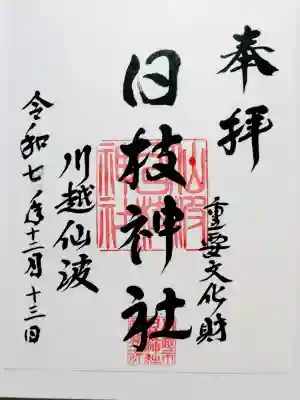 奉拝
重要文化財
日枝神社
川越仙波
令和七年十二月十三日